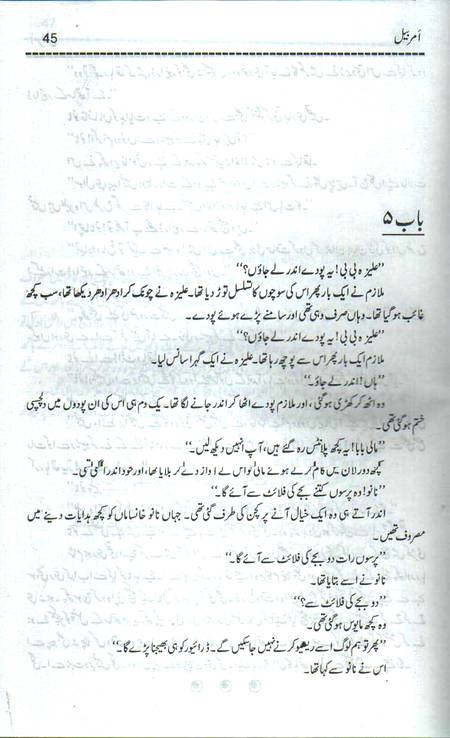 45
اَمر بیل
باب ۵
’’علیزہ بی بی! یہ پودے اندر لے جاؤں؟‘‘
ملازم نے ایک بار پھر اس کی سوچوں کا تسلسل توڑ دیا تھا۔ علیزہ نے چونک کر ادھر ادھر دیکھا تھا، سب کچھ
غائب ہو گیا تھا۔ وہاں صرف وہی تھی اور سامنے پڑے ہوئے پودے۔
’’علیزہ بی بی! یہ پودے اندر لے جاؤں؟‘‘
ملازم ایک بار پھر اس سے پوچھ رہا تھا۔ علیزہ نے ایک گہرا سانس لیا۔
’’ہاں! اندر لے جاؤ۔‘‘
وہ اٹھ کر کھڑی ہو گئی، اور ملازم پودے اٹھا کر اندر جانے لگا تھا۔ یک دم ہی اس کی ان پودوں میں دلچسپی
ختم ہو گئی تھی۔
’’مالی بابا! یہ کچھ پلانٹس رہ گئے ہیں، آپ انہیں دیکھ لیں۔‘‘
کچھ دور لان میں کام کرتے ہوئے مالی کو اس نے آواز دے کر بلایا تھا، اور خود اندر آ گئی تھی۔
’’نانو! وہ پرسوں کتنے بجے کی فلائٹ سے آئے گا۔‘‘
اندر آتے ہی وہ ایک خیال آنے پر کچن کی طرف گئی تھی۔ جہاں نانو خانساماں کو کچھ ہدایات دینے میں
مصروف تھیں۔
’’پرسوں رات دو بجے کی فلائٹ سے آئے گا۔‘‘
نانو نے اسے بتایا تھا۔
’’دو بجے کی فلائٹ سے؟‘‘
وہ کچھ مایوس ہو گئی تھی۔
’’پھر تو ہم لوگ اسے ریسیو کرنے نہیں جا سکیں گے۔ ڈرائیور کو ہی بھیجنا پڑے گا۔‘‘
اس نے نانو سے کہا تھا۔